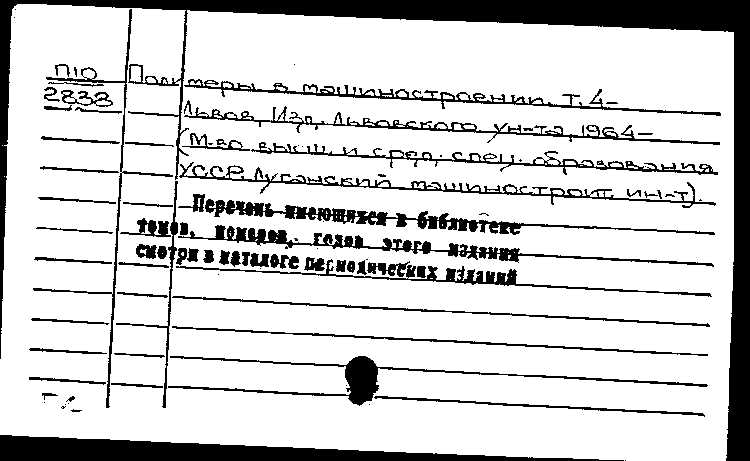 П10 Полимеры в машиностроении. Т. 4-
2833
Львов, Изд. Львовского ун-та, 1964-
(М-во высш. и сред. спец. образования
УССР. Луганский машиностроит. ин-т).
Перечень имеющихся в библиотеке
томов, номеров, годов этого издания
смотри в каталоге периодических изданий